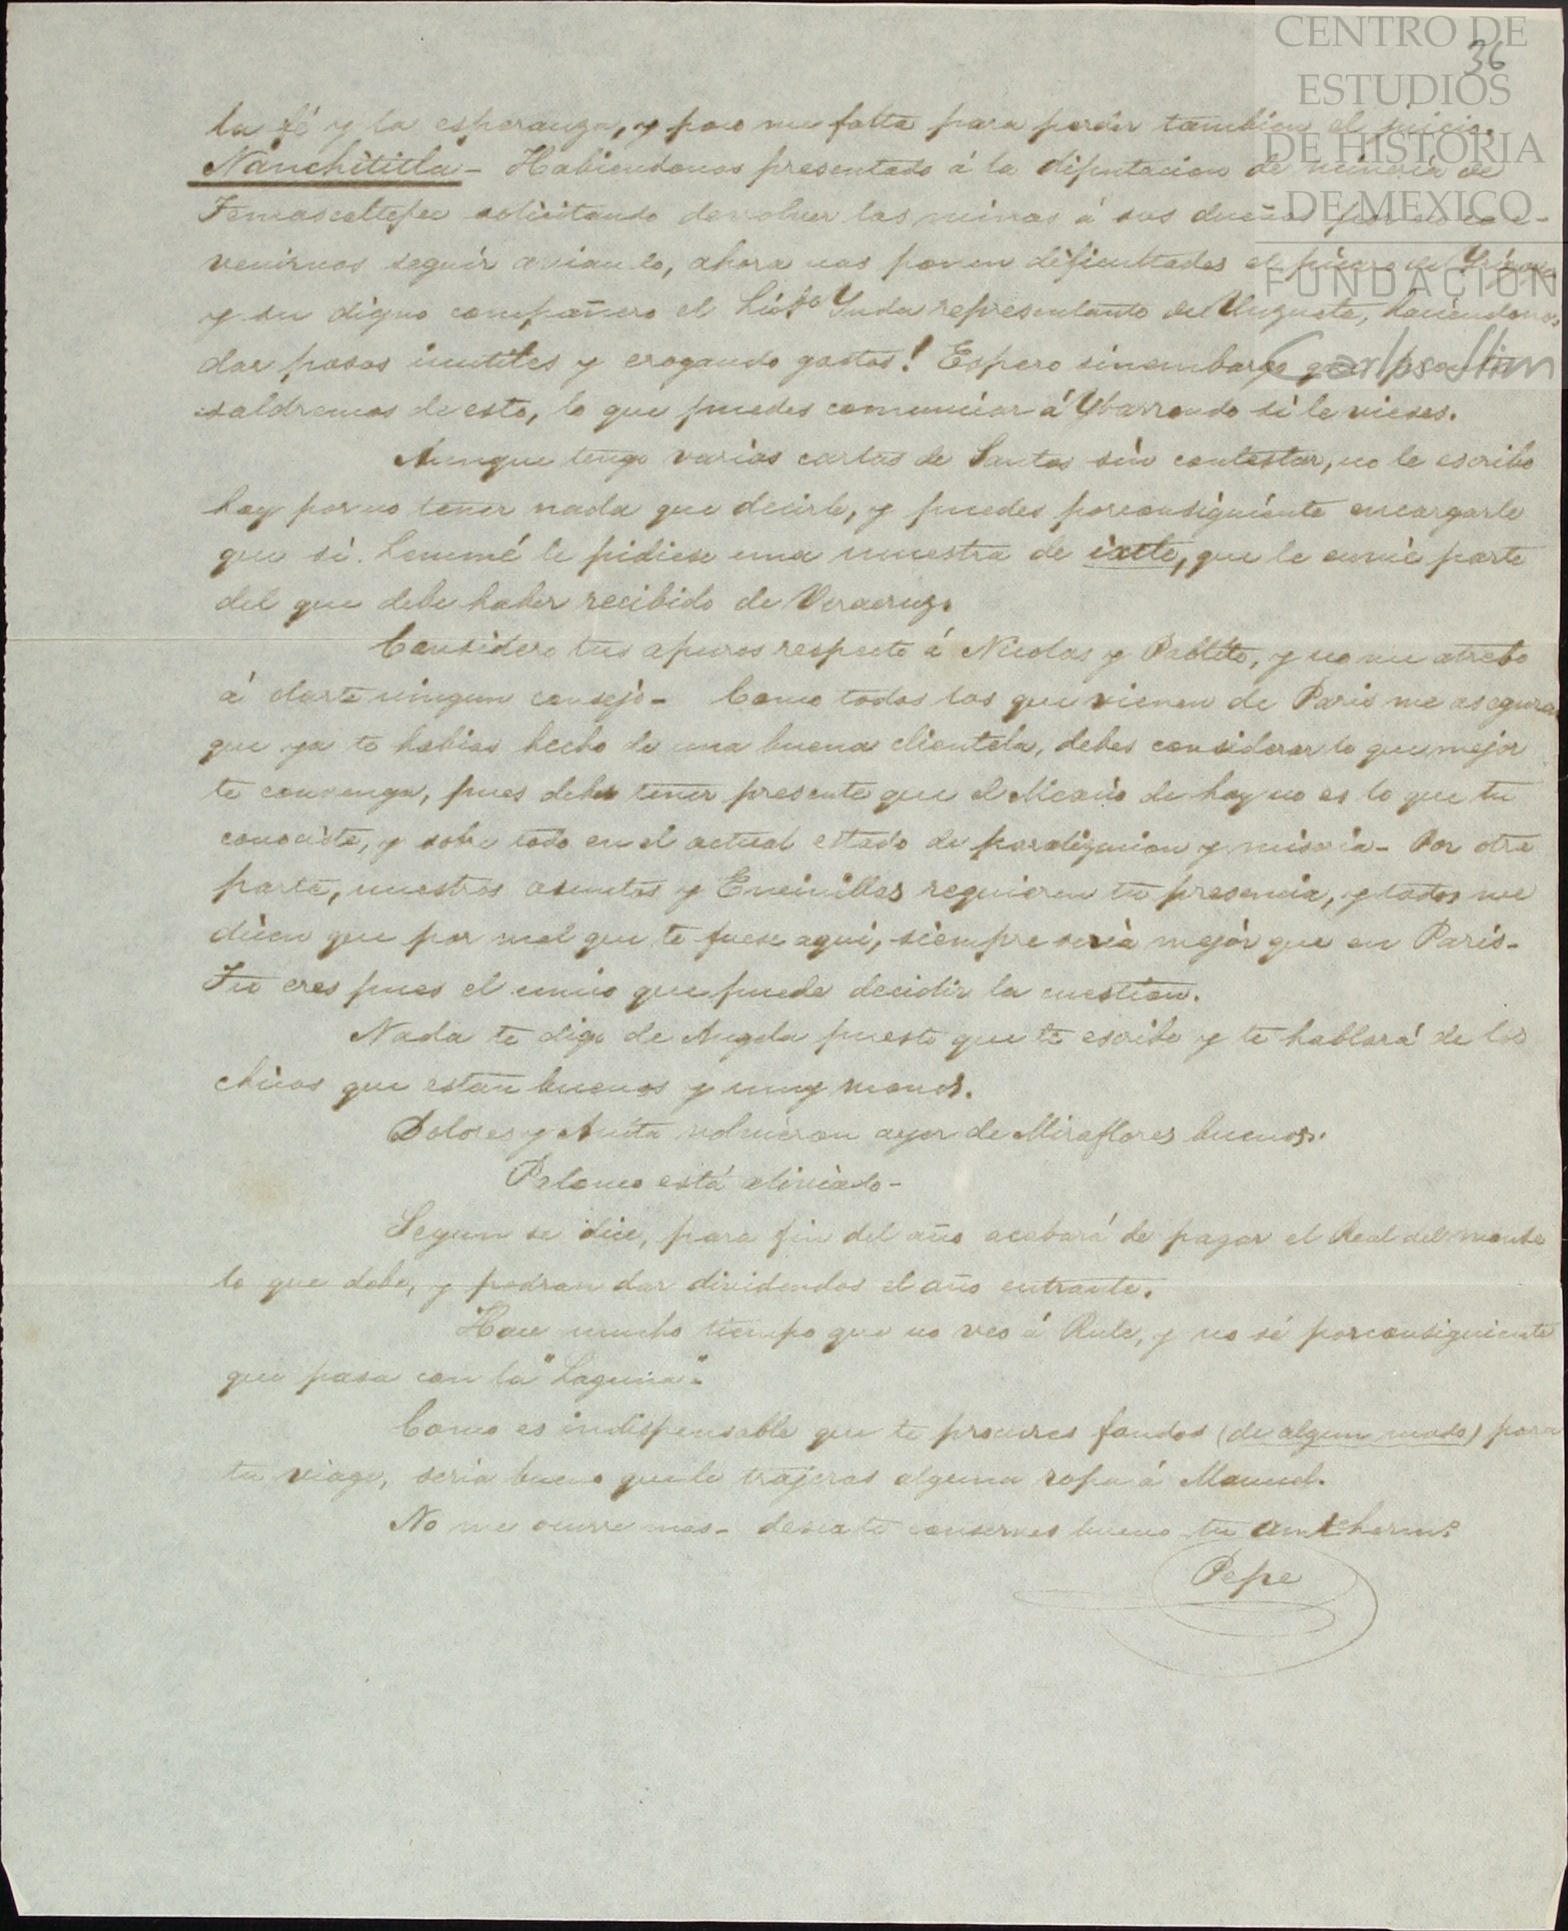 CENTRO DE
ESTUDIOS
DE HISTORIA
DE MEXICO
FUNDACIÓN
Carlos Slim
36
la fé y la esperanza, y poco me falta para perder tambien el juicio.
"Nanchititla" - Habiendonos presentado á la diputacion de mineria de
Temascaltepec solicitando devolver las minas á sus dueños por no con-
venirnos seguir aviando, ahora nos ponen dificultades el pícaro de
y su digno compañero el Licdo Yuda representante de Unzueta, haciéndonos
dar pasos inutiles y erogando gastos! Espero sinembargo que pronto
saldremos de esto, lo que puedes comunicar á Ybarrondo si le vieses.
Aunque tengo varias cartas de Santos sin contestar, no le escribo
hoy por no tener nada que decirle, y puedes porconsiguiente encargarle
que si Lemmé le pidiese una muestra de ixtle, que le envie parte
del que debe haber recibido de Veracruz.
Considero tus apuros respecto á Nicolas y Pablito, y no me atrebo
á darte ningun consejo - Como todos los que vienen de Paris me aseguran
que ya te habias hecho de una buena clientela, debes considerar lo que mejor
te convenga, pues debes tener presente que el Mexico de hoy no es lo que tu
conociste, y sobre todo en el actual estado de paralizacion y miseria - Por otra
parte, nuestros asuntos y Encinillas requieren tu presencia, y todos me
dicen que por mal que te fuese aqui, siempre seria mejor que en Paris -
Tu eres pues el unico que puede decidir la cuestion.
Nada te digo de Angela puesto que te escribe y te hablará de los
chicos que estan buenos y muy monos.
Dolores y Anita volvieron ayer de Miraflores buenos.
Palomo está aliviado -
Segun se dice, para fin del año acabará de pagar el Real del monte
lo que debe, y podran dar dividendos el año entrante.
Hace mucho tiempo que no veo á Rule, y no sé porconsiguiente
que pasa con la "Laguna" -
Como es indispensable que te procures fondos (de algun modo) para
tu viage, seria bueno que le trajeras alguna ropa á Manuel.
No me ocurre mas - deseate conserves bueno tu amte. hermo.
Pepe